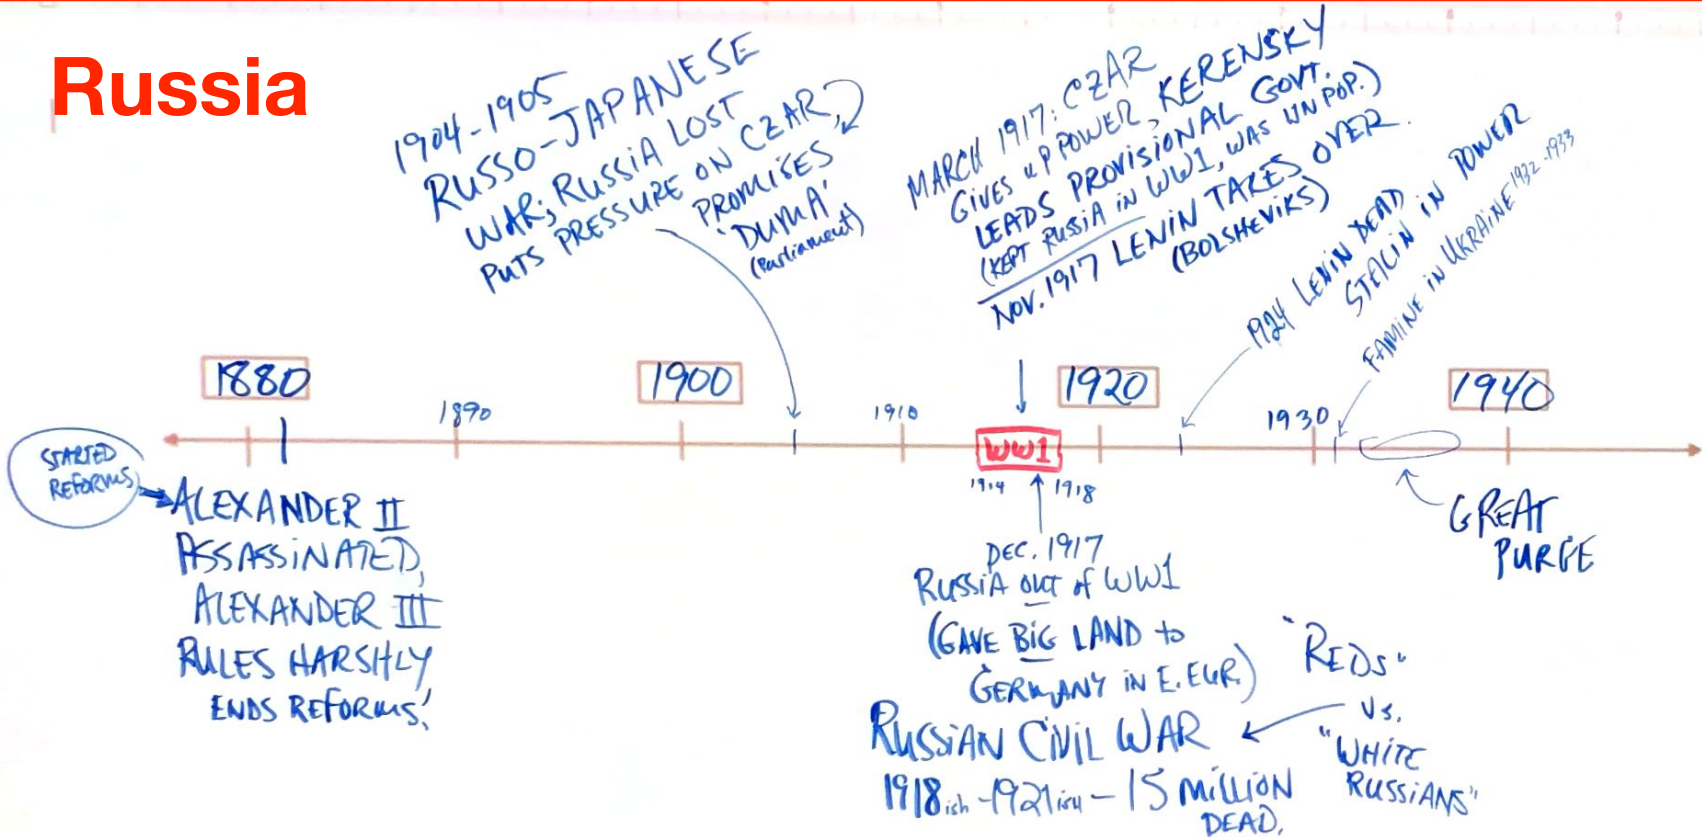 Russia
1904-1905
RUSSO-JAPANESE
WAR; RUSSIA LOST
PUTS PRESSURE ON CZAR,
PROMISES
'DUMA'
(Parliament)
MARCH 1917: CZAR
GIVES UP POWER, KERENSKY
LEADS PROVISIONAL GOVT.
(KEPT RUSSIA IN WW1, WAS UNPOP.)
NOV. 1917 LENIN TAKES OVER
(BOLSHEVIKS)
1924 LENIN DEAD
STALIN IN POWER
FAMINE IN UKRAINE 1932-1933
1880
1890
1900
1910
WW1
1914
1918
1920
1930
1940
STARTED
REFORMS
ALEXANDER II
ASSASSINATED,
ALEXANDER III
RULES HARSHLY
ENDS REFORMS!
DEC. 1917
RUSSIA OUT of WW1
(GAVE BIG LAND to
GERMANY IN E. EUR.)
RUSSIAN CIVIL WAR
1918ish-1921ish - 15 MILLION
DEAD.
"REDS"
VS.
"WHITE
RUSSIANS"
GREAT
PURGE